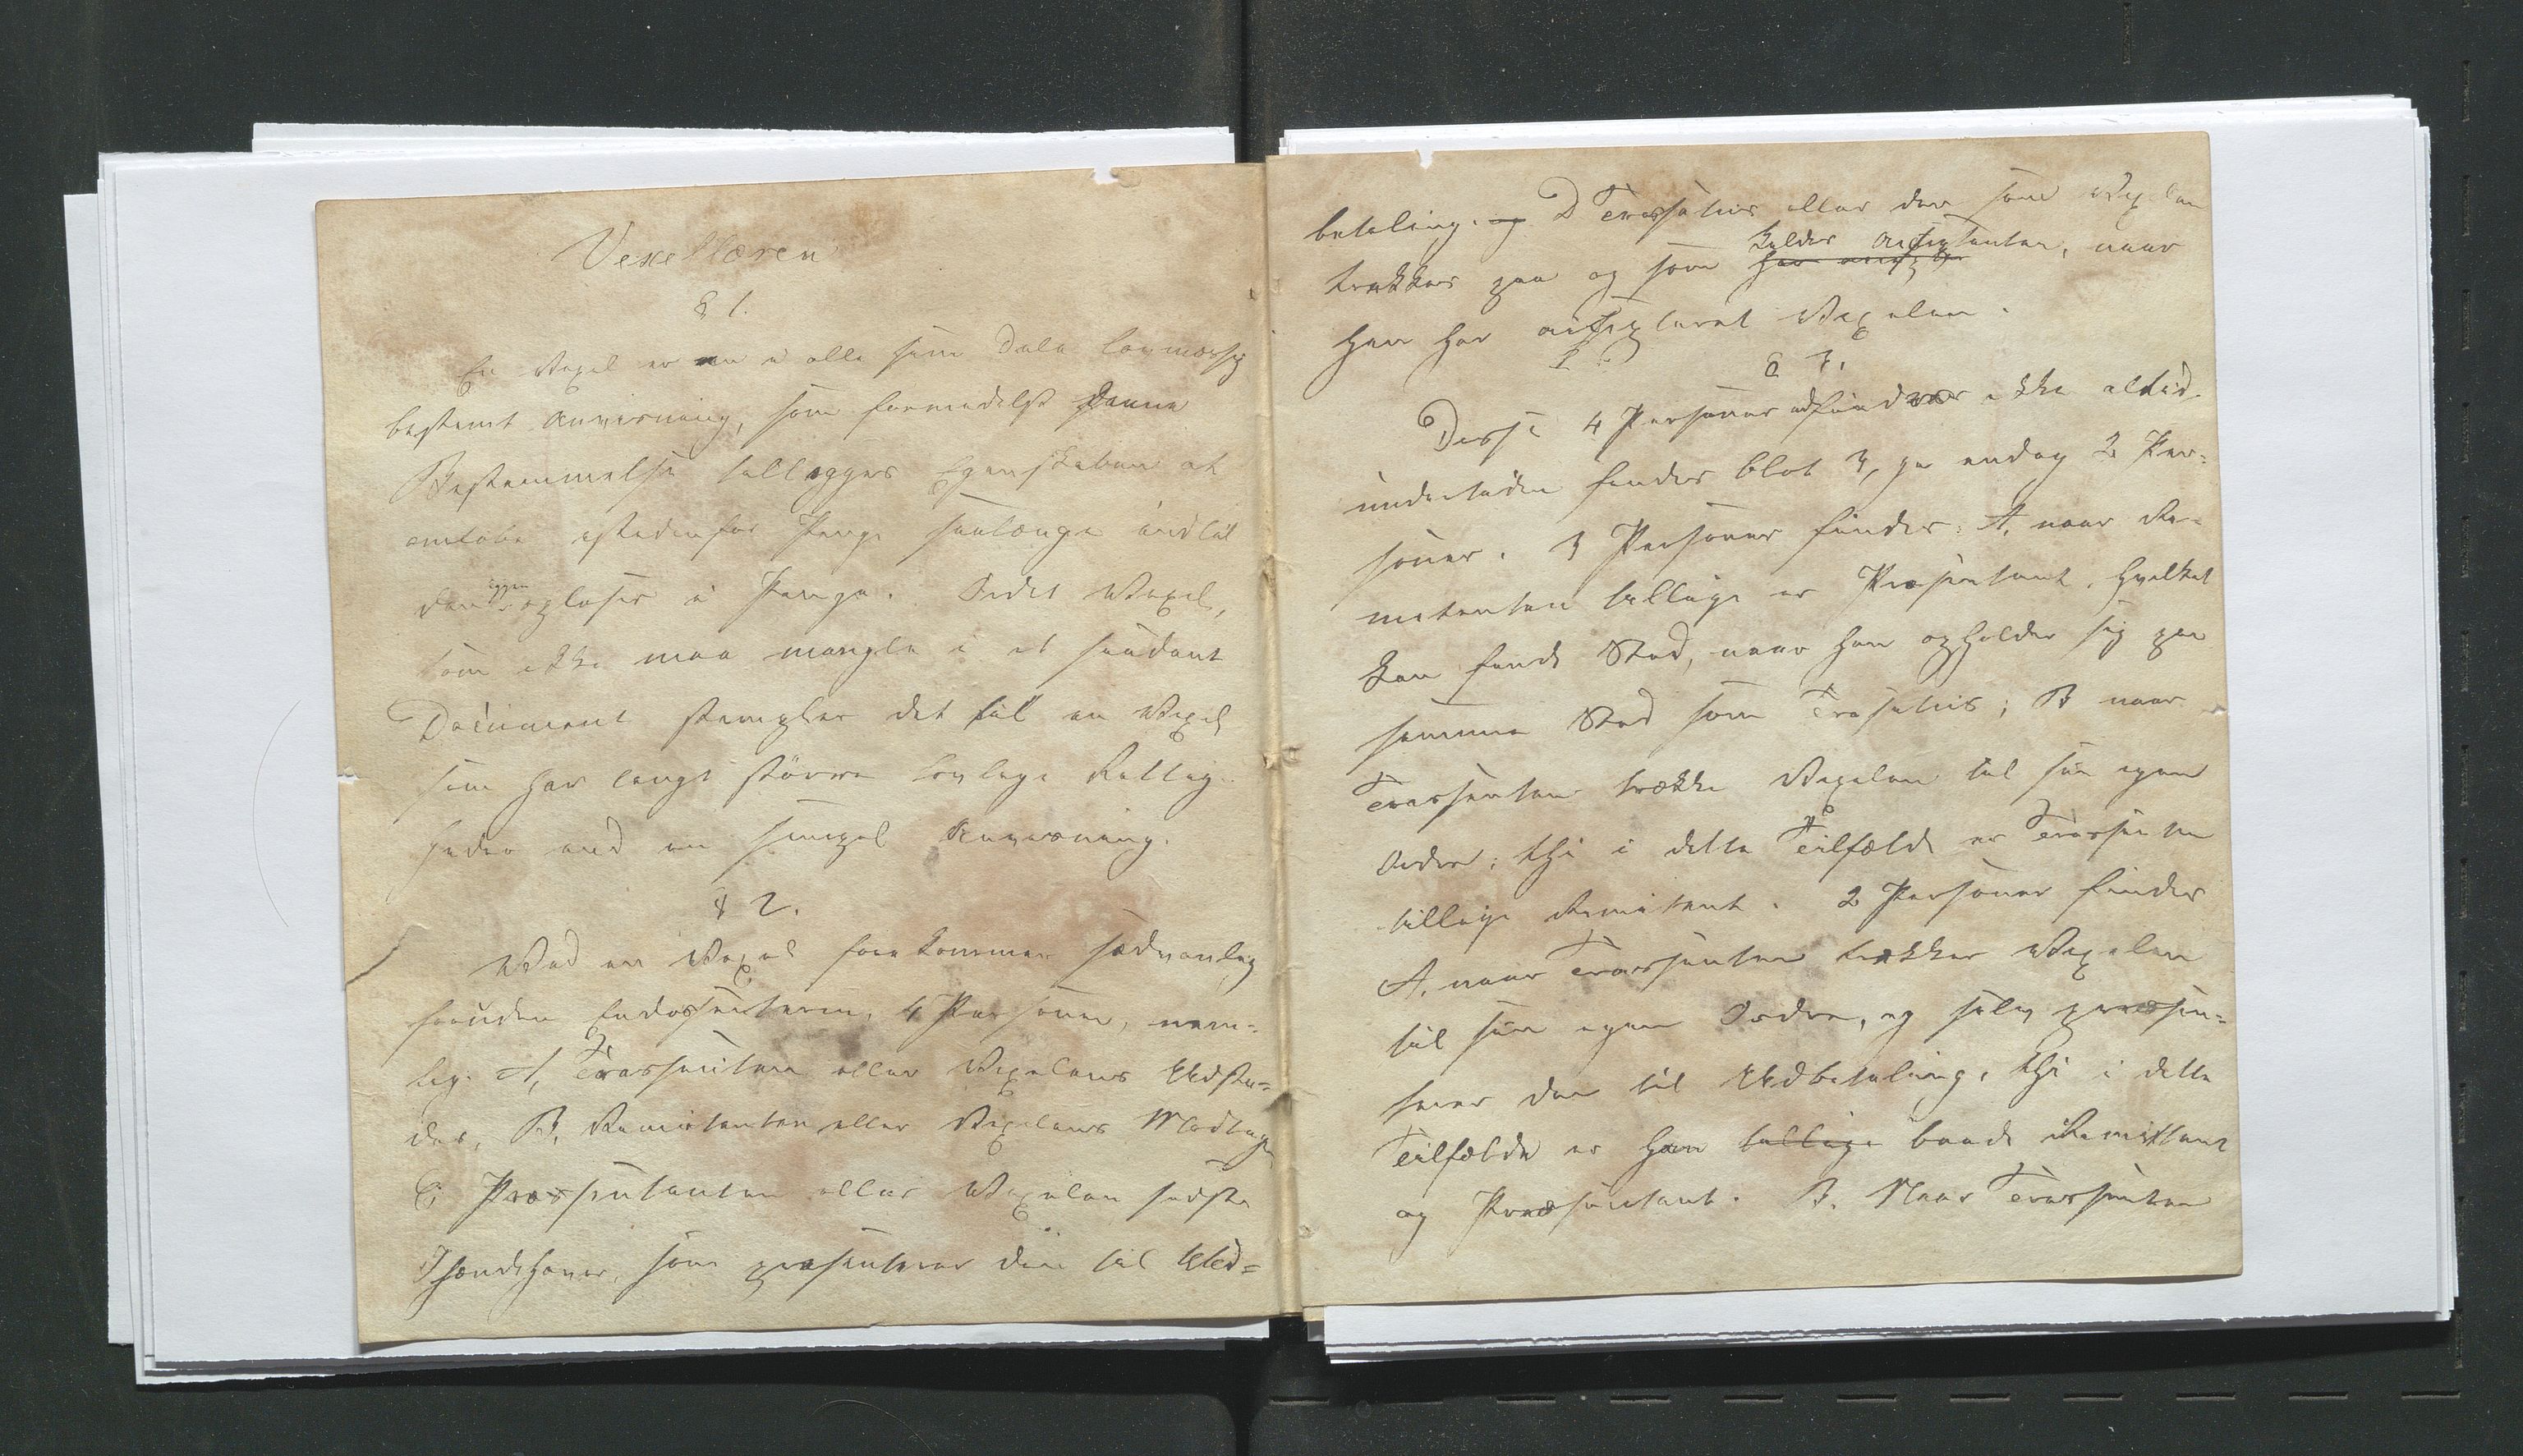 Vexellæren
§ 1.
En Vexel er en i alle sine Dele lovmæssig
bestemt Anviisning, som formedelst denne
Bestemmelse tillægges Egenskaben at
omløbe istedenfor Penge saalænge indtil
den igjen opløses i Penge. Ordet Vexel,
som ikke maa mangle i et saadant
Document stempler det til en Vexel
som har langt større lovlige Rettig-
heder end en simpel Anviisning.
§ 2.
Ved en Vexel forekommer sædvanlig
foruden Endossenterne, 4 Personer, nem=
lig. A, Trassenten eller Vexelens Udste=
der, B, Remittenten eller Vexelens Modtager
C Præsentanten eller Vexelens sidste
Ihændehaver, som præsenterer den til Ud=
betaling. og D Trassatus eller den som Vexelen
trækkes paa og som kaldes Acceptanten, naar
han har accepteret Vexelen.
§ 3.
Disse 4 Personer udfindes ikke altid.
undertiden findes blot 3, ja endog 2 Per=
soner. 3 Personer findes: A, naar Re-
mitenten tillige er Præsentant, hvilket
kan finde Sted, naar han opholder sig paa
samme Sted som Trasatus; B naar
Trassenten trække Vexelen til sin egen
Ordre; thi i dette Tilfælde er Trassenten
tillige Remitent. 2 Personer findes
A, naar Trassenten trækker Vexelen
til sin egen Ordre, og selv præsen=
terer den til Udbetaling, thi i dette
Tilfælde er han tillige baade Remittent
og Præsentant. B. Naar Trassenten